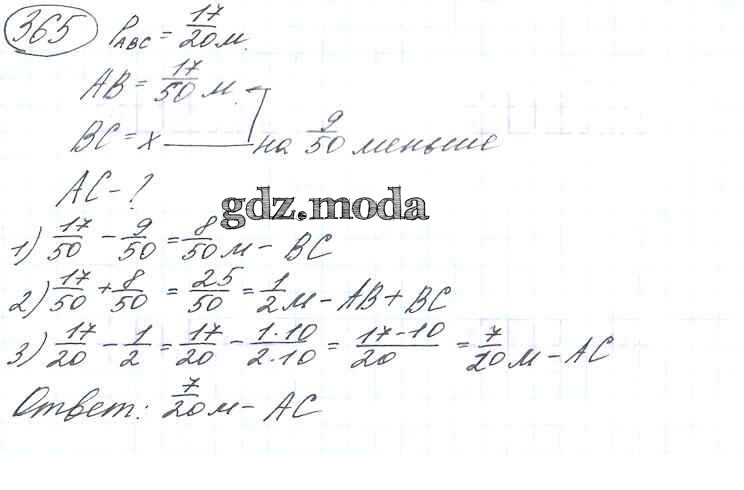 365 P_ABC = 17/20 м.
AB = 17/50 м.
BC = x на 9/50 меньше
AC - ?
gdz.moda
1) 17/50 - 9/50 = 8/50 м - BC
2) 17/50 + 8/50 = 25/50 = 1/2 м - AB + BC
3) 17/20 - 1/2 = 17/20 - 1·10/2·10 = 17-10/20 = 7/20 м - AC
Ответ: 7/20 м - AC